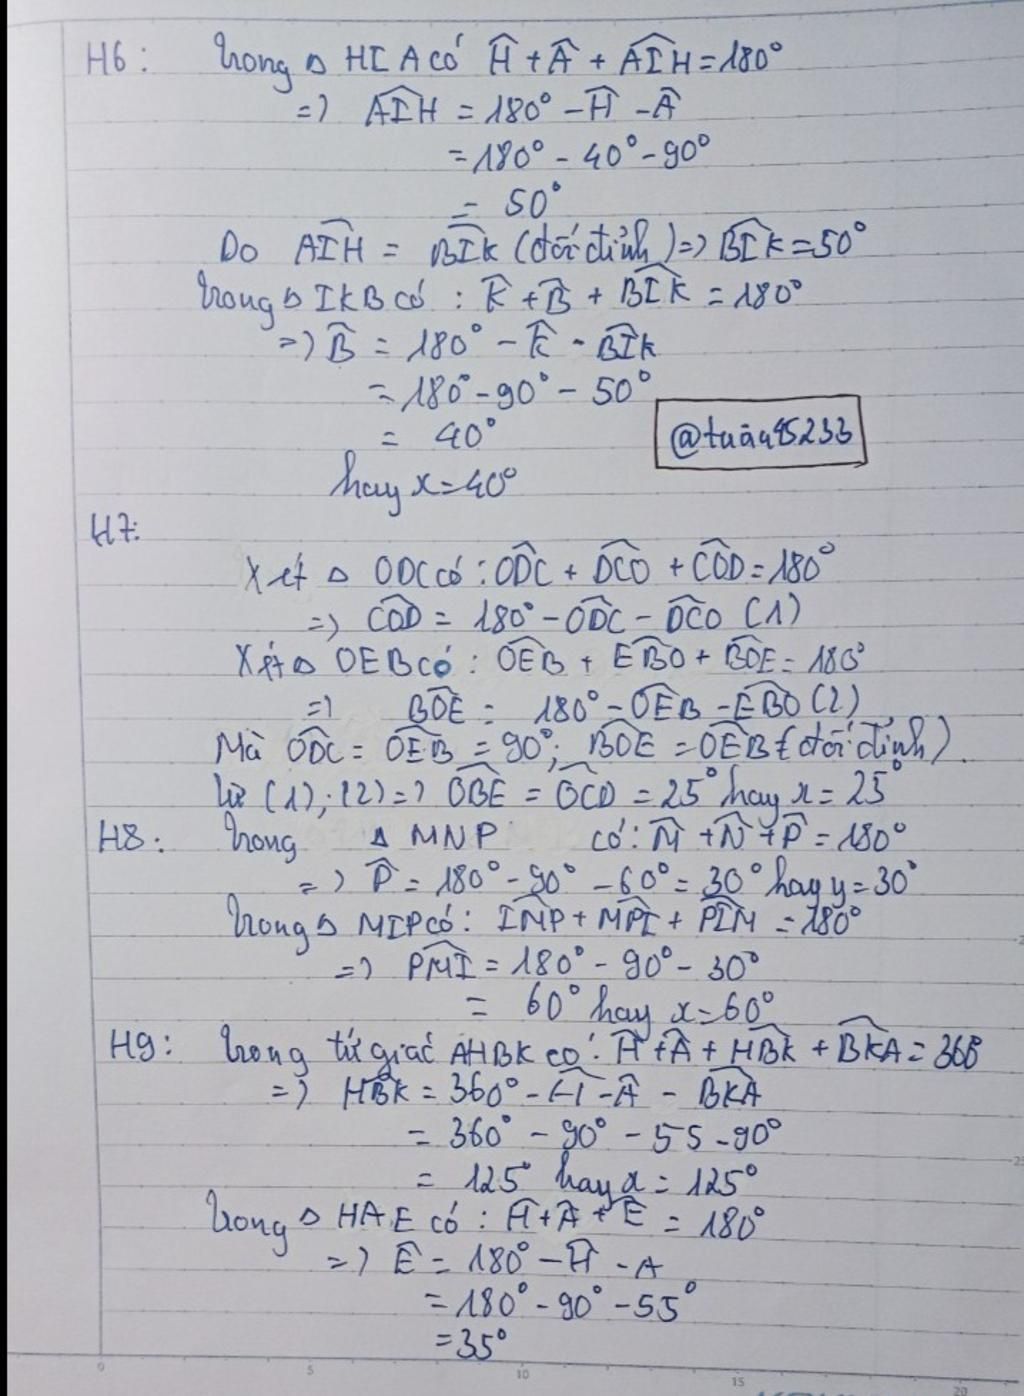 H6: Trong Δ HIA có Ĥ + Â + AÎH = 180°
=> AÎH = 180° - Ĥ - Â
= 180° - 40° - 90°
= 50°
Do AÎH = BÎK (đối đỉnh) => BÎK = 50°
Trong Δ IKB có : K̂ + B̂ + BÎK = 180°
=> B̂ = 180° - K̂ - BÎK
= 180° - 90° - 50°
= 40°
@tuân95233
hay x = 40°
H7:
Xét Δ ODC có : ODĈ + DCÔ + CÔD = 180°
=> CÔD = 180° - ODĈ - DCÔ (1)
Xét Δ OEB có : OÊB + EB̂O + BÔE = 180°
=> BÔE = 180° - OÊB - EB̂O (2)
Mà OD̂C = OÊB = 90°; BÔE = OÊB (đối đỉnh)
Từ (1); (2) => OB̂E = OĈD = 25° hay x = 25°
H8: Trong Δ MNP có: M̂ + N̂ + P̂ = 180°
=> P̂ = 180° - 90° - 60° = 30° hay y = 30°
Trong Δ MIP có: IM̂P + MP̂I + PÎM = 180°
=> PM̂I = 180° - 90° - 30°
= 60° hay x = 60°
H9: Trong tứ giác AHBK có: Ĥ + Â + HB̂K + BK̂A = 360°
=> HB̂K = 360° - Ĥ - Â - BK̂A
= 360° - 90° - 55 - 90°
= 125° hay x = 125°
Trong Δ HAE có : Ĥ + Â + Ê = 180°
=> Ê = 180° - Ĥ - A
= 180° - 90° - 55°
= 35°
0 5 10 15 20